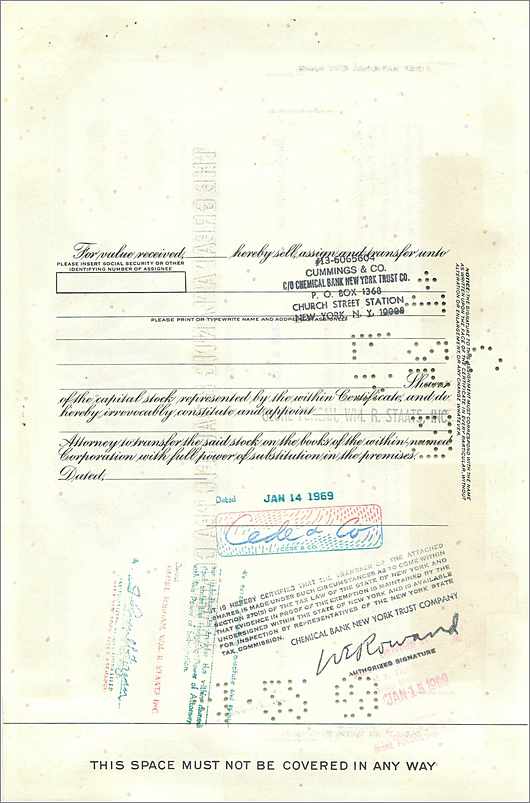 For value received, hereby sell, assign and transfer unto
PLEASE INSERT SOCIAL SECURITY OR OTHER
IDENTIFYING NUMBER OF ASSIGNEE
#13-6065604
CUMMINGS & CO.
C/O CHEMICAL BANK NEW YORK TRUST CO.
P. O. BOX 1368
CHURCH STREET STATION
NEW YORK, N. Y. 10008
PLEASE PRINT OR TYPEWRITE NAME AND ADDRESS OF ASSIGNEE
Shares
of the capital stock represented by the within Certificate, and do
hereby irrevocably constitute and appoint
WM. R. STAATS, INC.
Attorney to transfer the said stock on the books of the within named
Corporation with full power of substitution in the premises.
Dated,
NOTICE: THE SIGNATURE TO THIS ASSIGNMENT MUST CORRESPOND WITH THE NAME
AS WRITTEN UPON THE FACE OF THE CERTIFICATE IN EVERY PARTICULAR, WITHOUT
ALTERATION OR ENLARGEMENT OR ANY CHANGE WHATEVER.
Dated JAN 14 1969
Cede & Co
CEDE & CO.
IT IS HEREBY CERTIFIED THAT THE TRANSFER OF THE ATTACHED
SHARES IS MADE UNDER SUCH CIRCUMSTANCES AS TO COME WITHIN
SECTION 270(5) OF THE TAX LAW OF THE STATE OF NEW YORK AND
THAT EVIDENCE IN PROOF OF THE EXEMPTION IS MAINTAINED BY THE
UNDERSIGNED WITHIN THE STATE OF NEW YORK AND IS AVAILABLE
FOR INSPECTION BY REPRESENTATIVES OF THE NEW YORK STATE
TAX COMMISSION.
CHEMICAL BANK NEW YORK TRUST COMPANY
WE Rowand
AUTHORIZED SIGNATURE
JAN 15 1969
WM. R. STAATS INC.
THIS SPACE MUST NOT BE COVERED IN ANY WAY